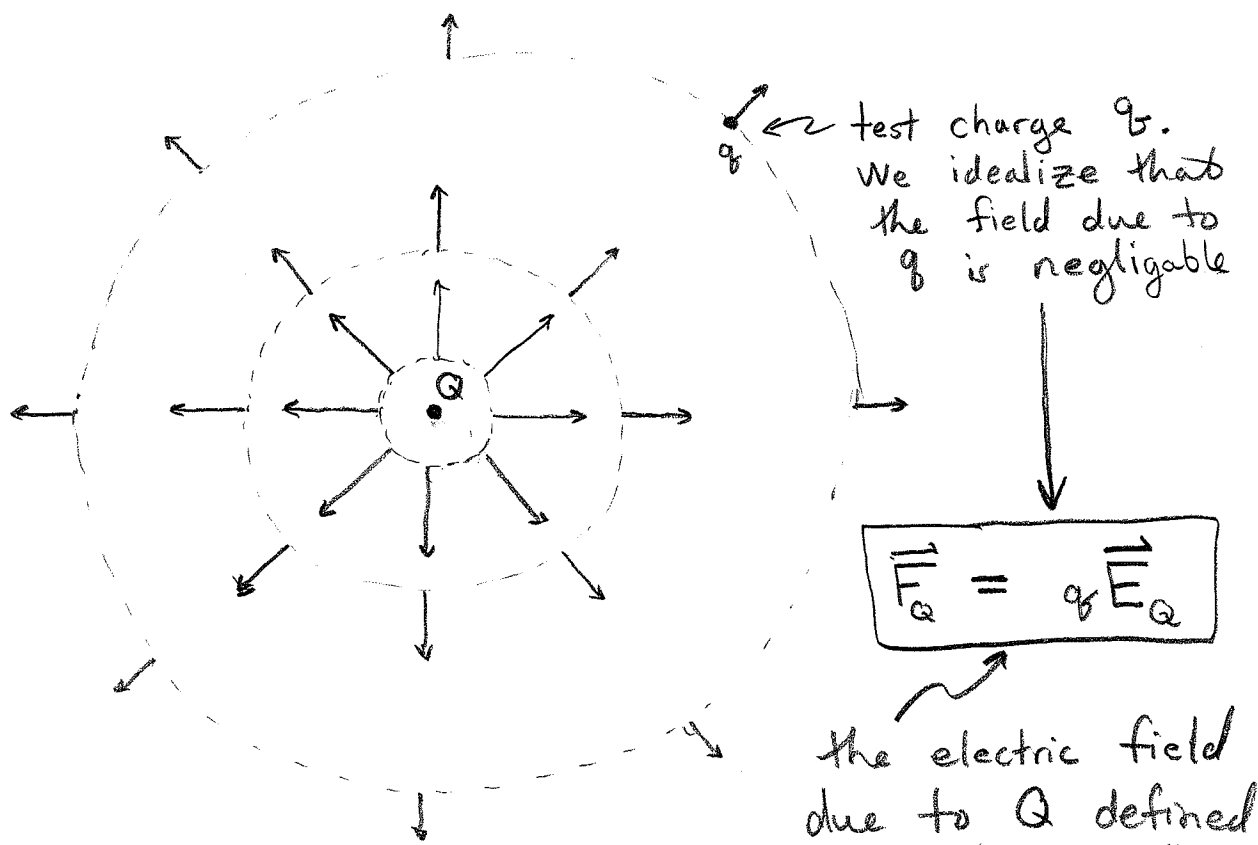 Q
q
test charge q.
We idealize that
the field due to
q is negligable
F⃗_Q = q E⃗_Q
the electric field
due to Q defined